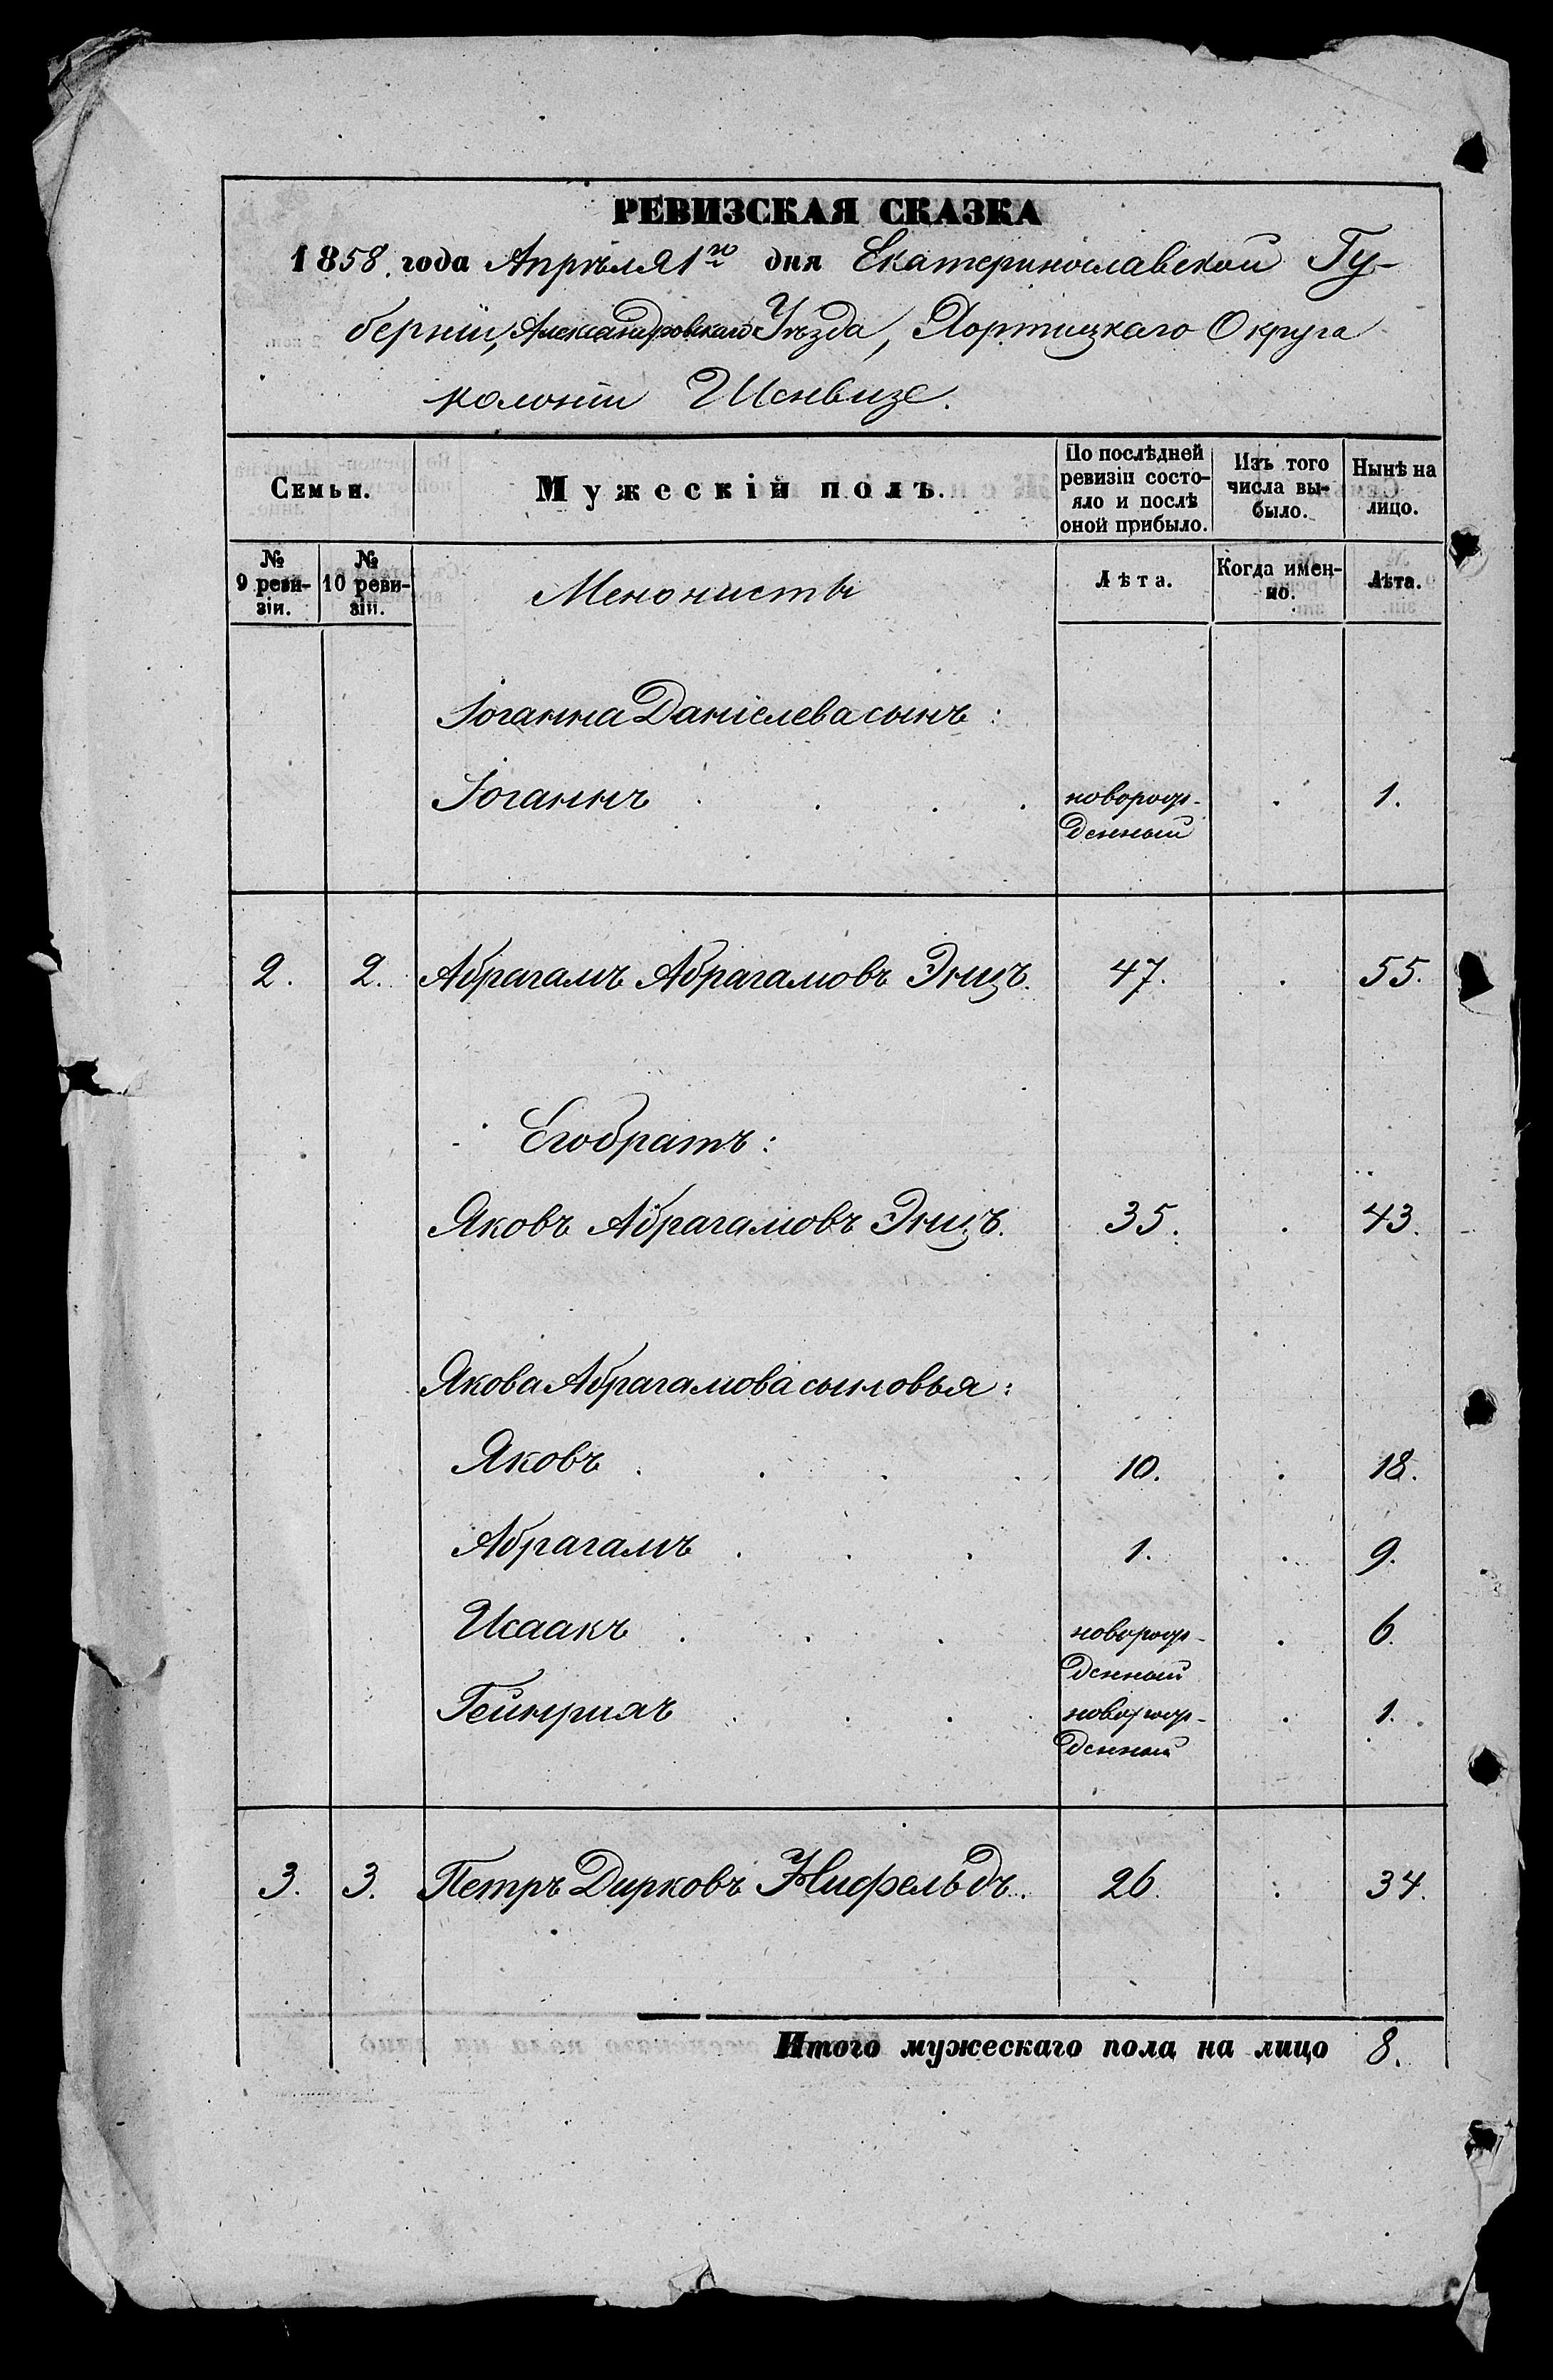 РЕВИЗСКАЯ СКАЗКА
1858. года Апрѣля 1го дня Екатеринославской Гу-
берніи, Александровскаго Уѣзда, Хортицкаго Округа
колоніи Шенвизе.
Семьи.
Мужескій полъ.
По послѣдней
ревизіи состо-
яло и послѣ
оной прибыло.
Изъ того
числа вы-
было.
Нынѣ на
лицо.
№
9 реви-
зіи.
№
10 реви-
зіи.
Менонисты
Лѣта.
Когда имен-
но.
Лѣта.
Іоганна Даніелева сынъ:
Іоганнъ . . . . новорож- . 1.
денный
2. 2. Абрагамъ Абрагамовъ Энцъ. 47. . 55.
Его братъ:
Яковъ Абрагамовъ Энцъ. 35. . 43.
Якова Абрагамова сыновья:
Яковъ . . . . 10. . 18.
Абрагамъ . . . 1. . 9.
Исаакъ . . . новорож- . 6.
денный
Гейнрихъ . . . новорож- . 1.
денный
3. 3. Петръ Дирковъ Нифельдъ. 26. . 34.
Итого мужескаго пола на лицо 8.